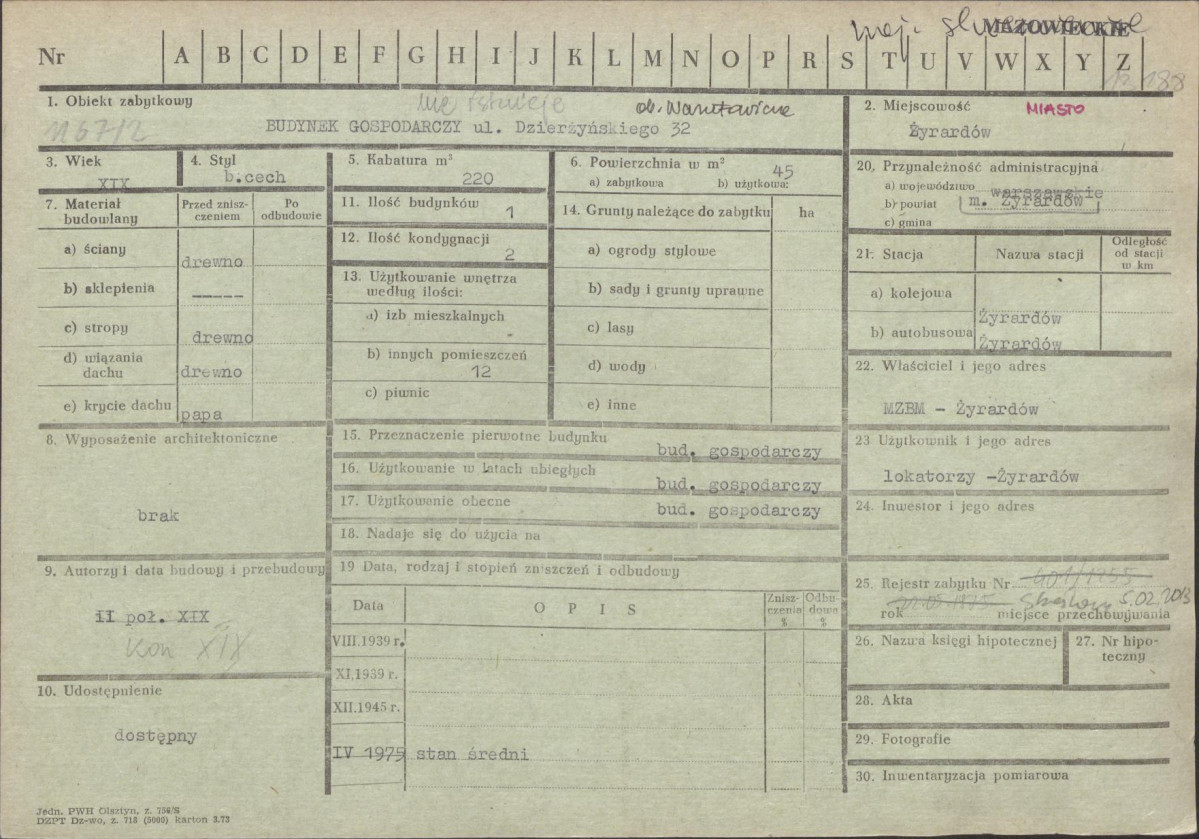 woj.
MAZOWIECKIE
Nr A B C D E F G H I J K L M N O P R S T U V W X Y Z
1. Obiekt zabytkowy
nie istnieje
1167/2
BUDYNEK GOSPODARCZY ul. Dzierżyńskiego 32
2. Miejscowość MIASTO
Żyrardów
3. Wiek
XIX
4. Styl
b.cech
5. Kabatura m³
220
6. Powierzchnia w m²
45
a) zabytkowa b) użytkowa:
7. Materiał budowlany
Przed znisz-
czeniem
Po
odbudowie
a) ściany drewno
b) sklepienia -----
c) stropy drewno
d) wiązania
dachu drewno
e) krycie dachu papa
8. Wyposażenie architektoniczne
brak
9. Autorzy i data budowy i przebudowy
II poł. XIX
kon XIX
10. Udostępnienie
dostępny
11. Ilość budynków
1
12. Ilość kondygnacji
2
13. Użytkowanie wnętrza
według ilości:
a) izb mieszkalnych
-
b) innych pomieszczeń
12
c) piwnic
14. Grunty należące do zabytku ha
a) ogrody stylowe
b) sady i grunty uprawne
c) lasy
d) wody
e) inne
15. Przeznaczenie pierwotne budynku
bud. gospodarczy
16. Użytkowanie w latach ubiegłych
bud. gospodarczy
17. Użytkowanie obecne
bud. gospodarczy
18. Nadaje się do użycia na
19 Data, rodzaj i stopień zniszczeń i odbudowy
Data OPIS
Znisz-
czenia
%
Odbu-
dowa
%
VIII.1939 r.
XI.1939 r.
XII.1945 r.
IV 1975 stan średni
20. Przynależność administracyjna
a) województwo warszawskie
b) powiat m. Żyrardów
c) gmina
21. Stacja Nazwa stacji
Odległość
od stacji
w km
a) kolejowa Żyrardów
b) autobusowa Żyrardów
22. Właściciel i jego adres
MZBM - Żyrardów
23 Użytkownik i jego adres
lokatorzy -Żyrardów
24. Inwestor i jego adres
25. Rejestr zabytku Nr 401/1255
5.02.2013
rok miejsce przechowywania
26. Nazwa księgi hipotecznej
27. Nr hipo-
teczny
28. Akta
29. Fotografie
30. Inwentaryzacja pomiarowa
Jedn. PWH Olsztyn, z. 756/S
DZPT Dz-wo, z. 718 (5000) karton 3.73